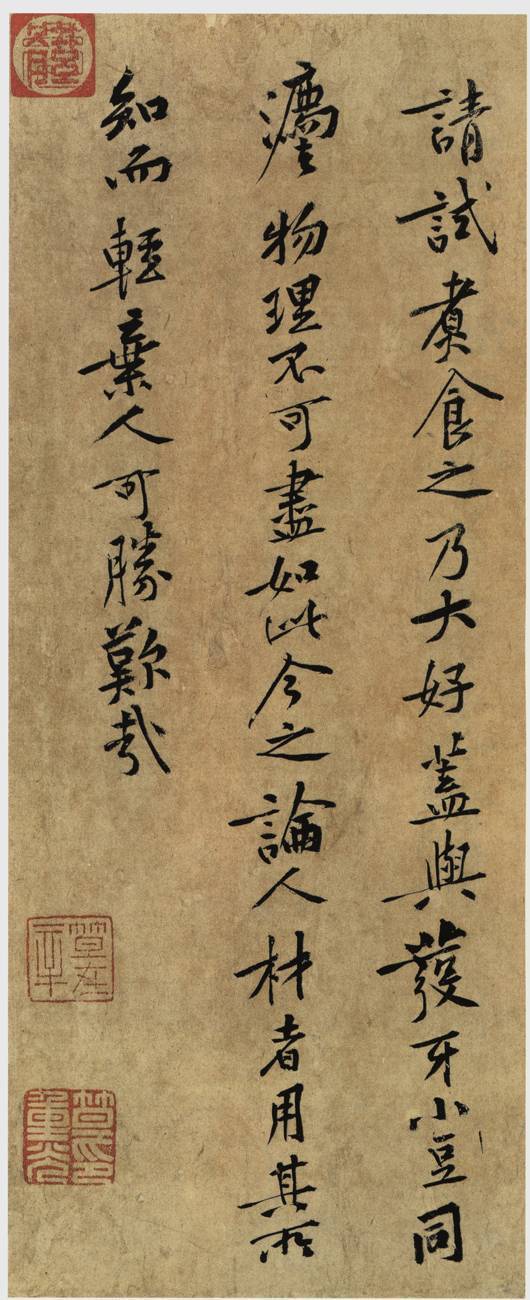 請試煮食之乃大好蓋與發牙小豆同
物理不可盡如此今之論人材者用其所
知而輕棄人可勝歎哉